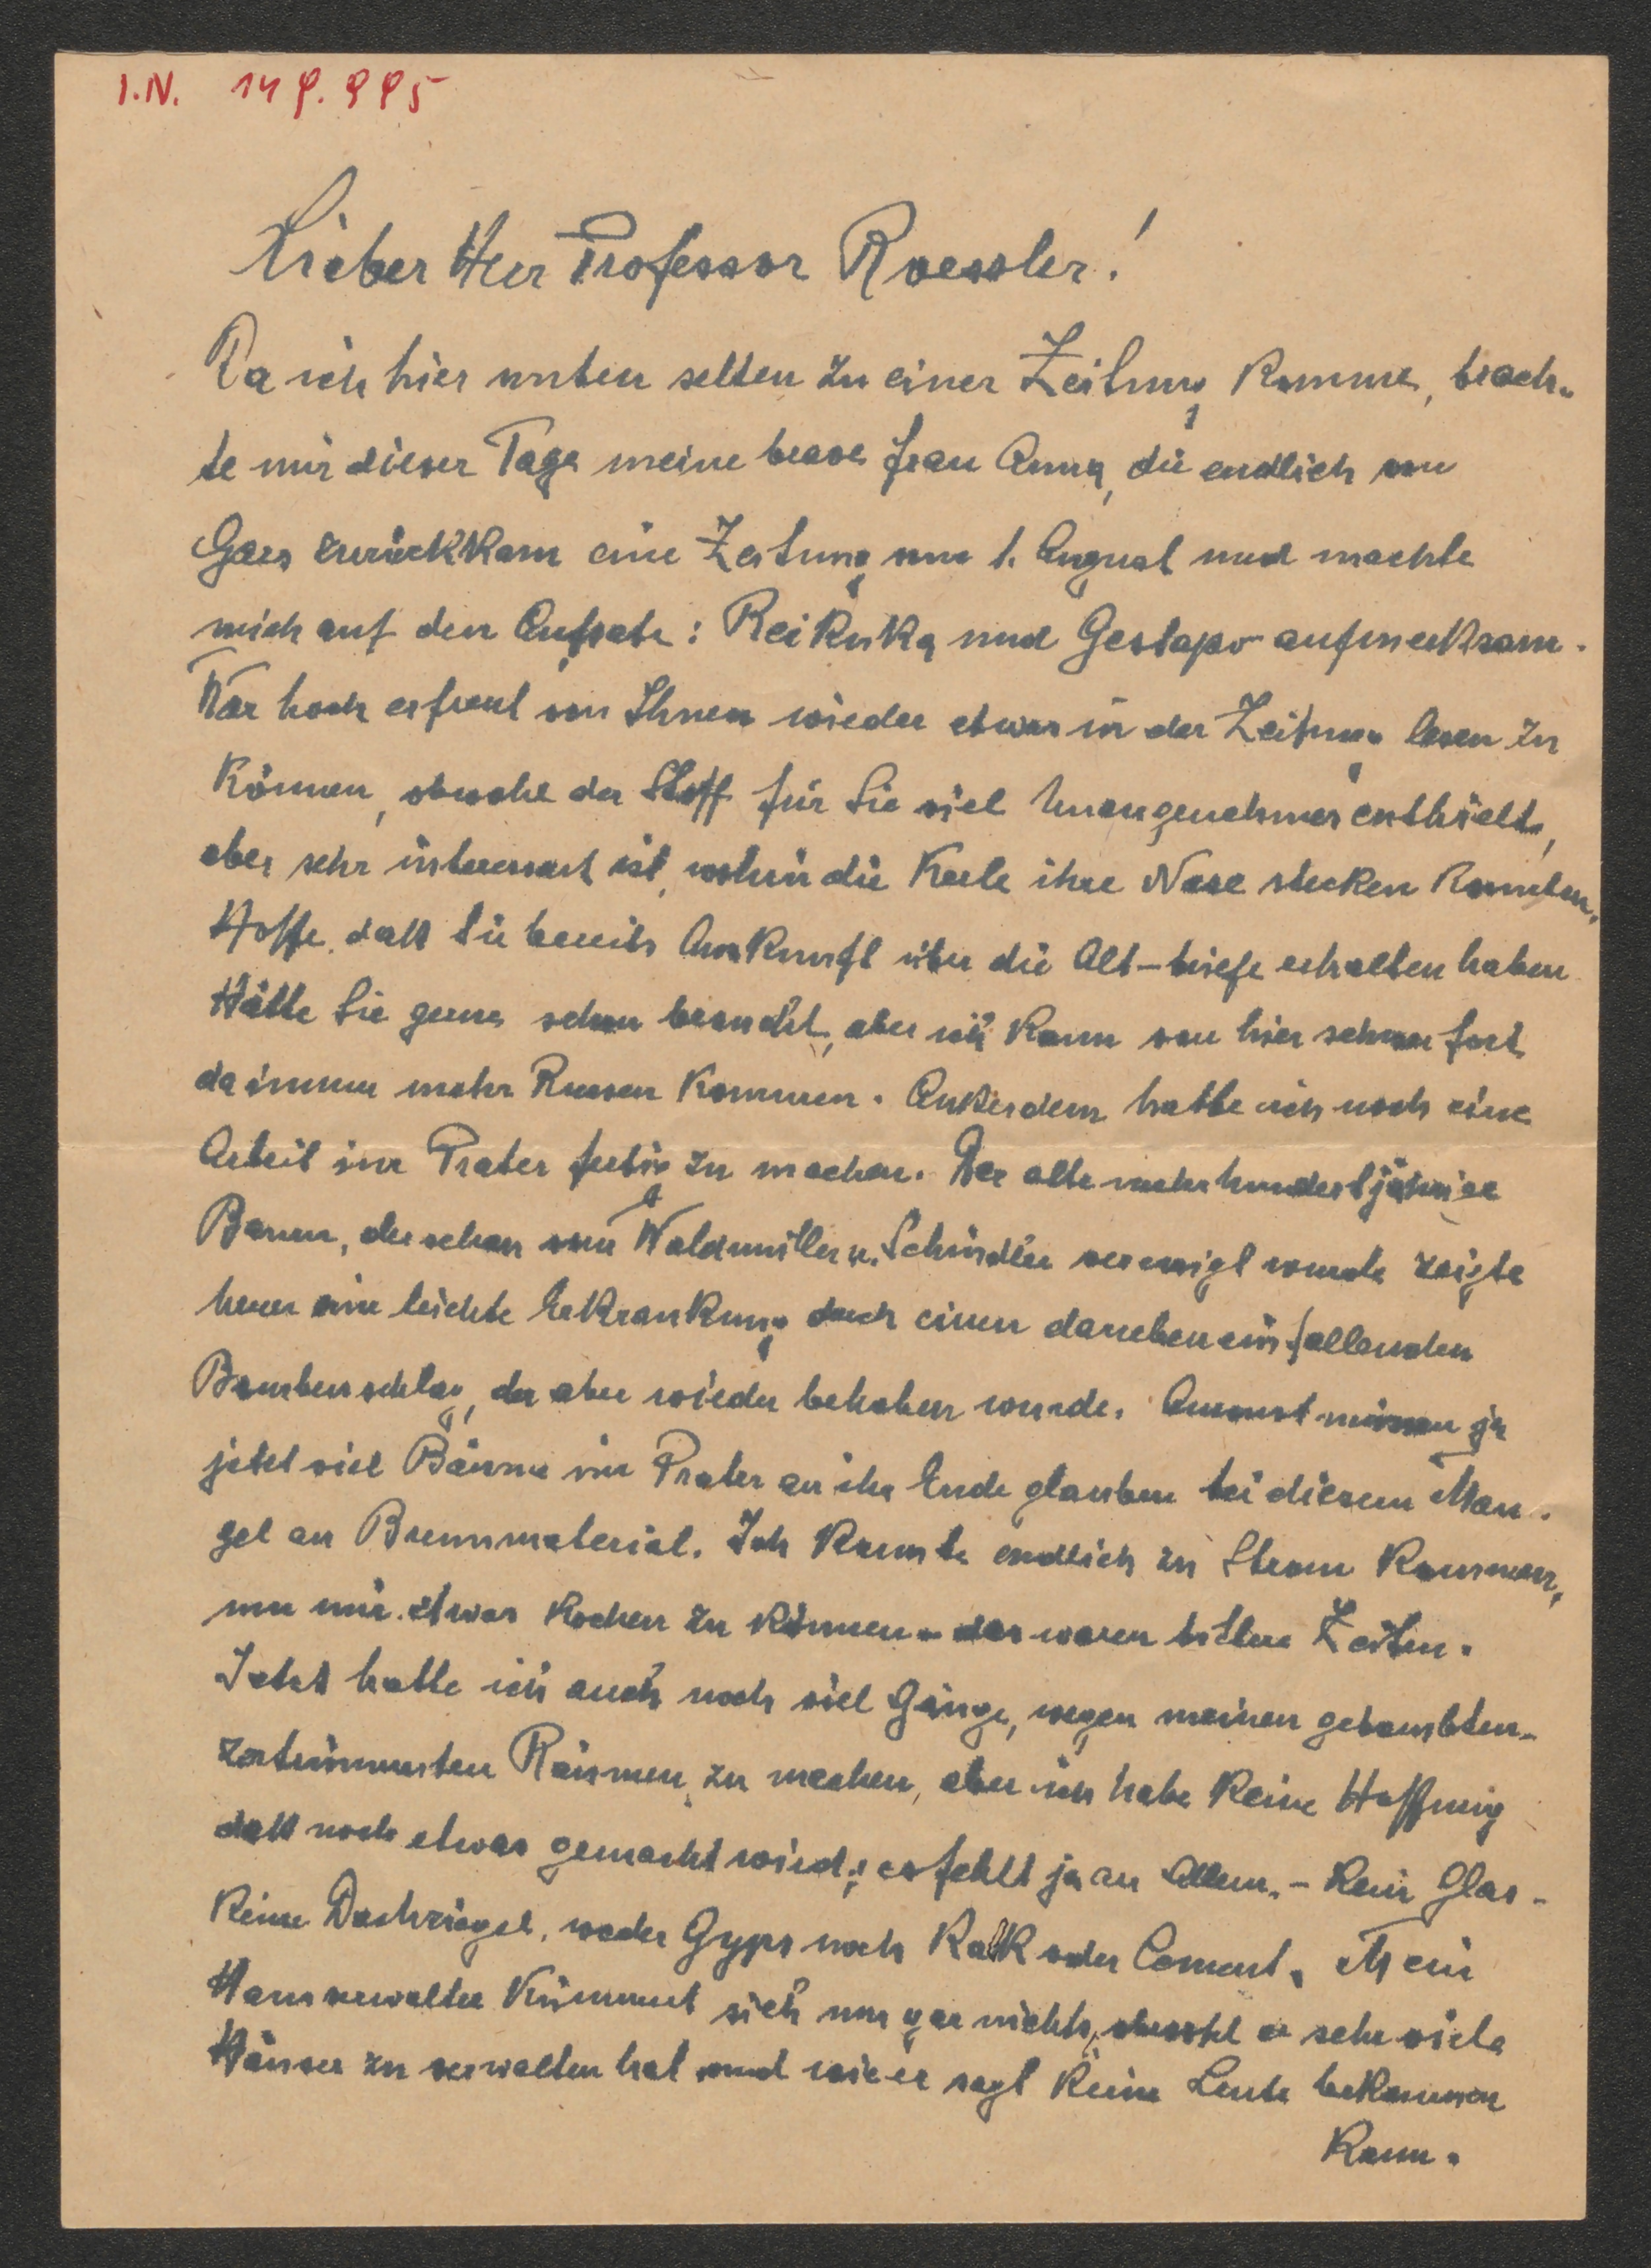 I.N. 149.995
Lieber Herr Professor Roessler!
Da ich hier unten selten zu einer Zeitung komme, brach-
te mir dieser Tage meine brave Frau Anna, die endlich von
Gars zurückkam eine Zeitung vom 1. August und machte
mich auf den Aufsatz: Reikuka und Gestapo aufmerksam.
War hoch erfreut von Ihnen wieder etwas in der Zeitung lesen zu
können, obwohl der Stoff für Sie viel Unangenehmes enthielt,
aber sehr interessant ist, wohin die Kerle ihre Nase stecken konnten.
Hoffe, daß Sie bereits Auskunft über die Alt-briefe erhalten haben
Hätte Sie gerne schon besucht, aber ich kann von hier schwer fort
da immer mehr Russen kommen. Außerdem hatte ich noch eine
Arbeit im Prater fertig zu machen. Der alte mehrhundertjährige
Baum, der schon von Waldmüller u. Schindler verewigt wurde zeigte
heuer eine leichte Erkrankung durch einen daneben einfallenden
Bombenschlag, der aber wieder behoben wurde. Ansonst müssen ja
jetzt viel Bäume im Prater an ihr Ende glauben bei diesem Man-
gel an Brennmaterial. Ich konnte endlich zu Strom kommen,
um mir etwas kochen zu können - das waren bittere Zeiten.
Jetzt hatte ich auch noch viel Gänge, wegen meinen gebombten-
zertrümmerten Räumen, zu machen, aber ich habe keine Hoffnung
daß noch etwas gemacht wird; es fehlt ja an Allem. - Kein Glas -
keine Dachziegel, weder Gyps noch Kalk oder Cement. Mein
Hausverwalter kümmert sich um gar nichts, obwohl er sehr viele
Häuser zu verwalten hat und wie er sagt keine Leute bekommen
kann.